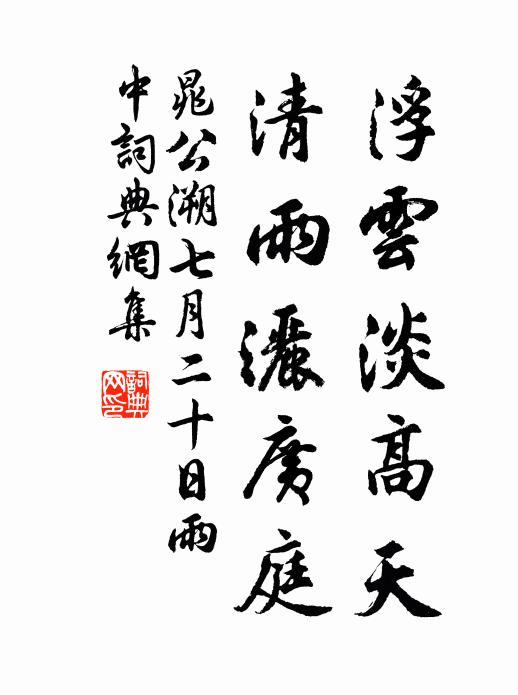 浮雲淡高天
清雨灑廣庭
晁公溯七月二十日雨
中詞典網集
詞典
网印